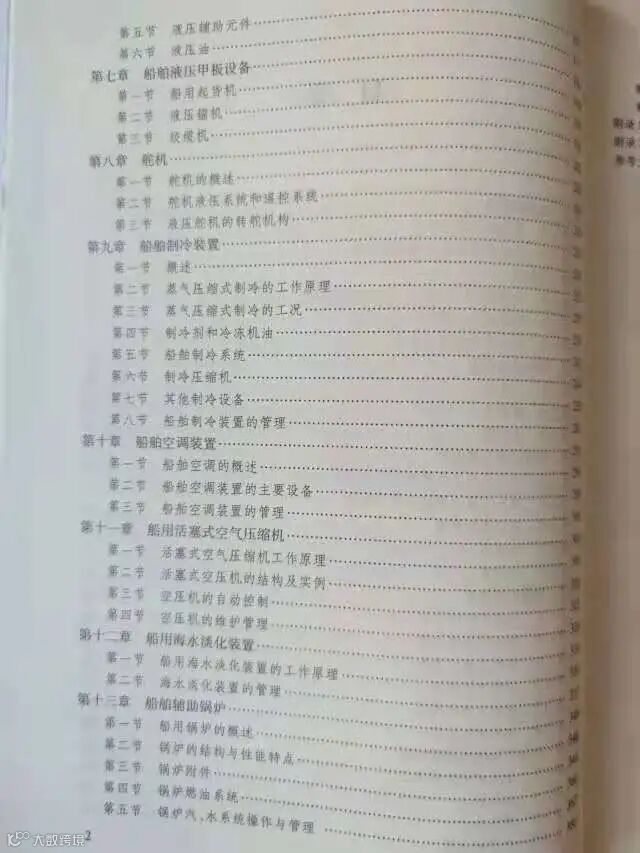 第五节 液压辅助元件
第六节 液压油
第七章 船舶液压甲板设备
第一节 船用起货机
第二节 液压锚机
第三节 绞缆机
第八章 舵机
第一节 舵机的概述
第二节 舵机液压系统和遥控系统
第三节 液压舵机的转舵机构
第九章 船舶制冷装置
第一节 概述
第二节 蒸气压缩式制冷的工作原理
第三节 蒸气压缩式制冷的工况
第四节 制冷剂和冷冻机油
第五节 船舶制冷系统
第六节 制冷压缩机
第七节 其他制冷设备
第八节 船舶制冷装置的管理
第十章 船舶空调装置
第一节 船舶空调的概述
第二节 船舶空调装置的主要设备
第三节 船舶空调装置的管理
第十一章 船用活塞式空气压缩机
第一节 活塞式空气压缩机工作原理
第二节 活塞式空压机的结构及实例
第三节 空压机的自动控制
第四节 空压机的维护管理
第十二章 船用海水淡化装置
第一节 船用海水淡化装置的工作原理
第二节 海水淡化装置的管理
第十三章 船舶辅助锅炉
第一节 船用锅炉的概述
第二节 锅炉的结构与性能特点
第三节 锅炉附件
第四节 锅炉燃油系统
第五节 锅炉汽、水系统操作与管理
2
附录
附录
参考
大数跨境